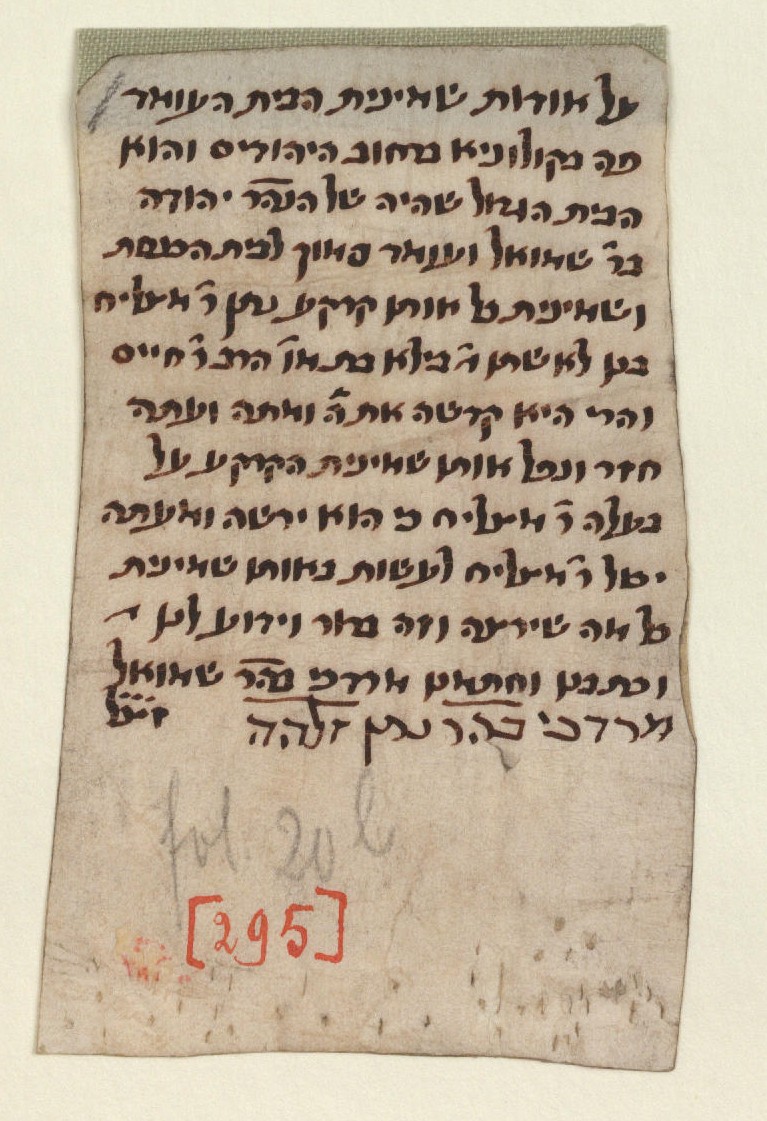 על אודות שמינית הבית העומד
פה בקולוניא ברחוב היהודים והוא
הבית הגדול שהיה של הנהר יהודה
בר׳ שמואל ועומד סמוך לבית הכנסת
ושמינית כל אותו קרקע נתן ר׳ מצליח
בנו לאשתו בילא בת הרב ר׳ חיים
והרי היא קדשה את ה׳ ומתה ועתה
חזר ונפל אותו שמינית הקרקע על
בעלה ר׳ מצליח כי הוא ירשה ומעתה
יכול ר׳ מצליח לעשות באותו שמינית
כל מה שירצה וזה ברור וידוע לנו
וכתבנו וחתמנו מרדכי בהר שמואל
מרדכי בהר נתן זלהה
fol. 20 b
[295]